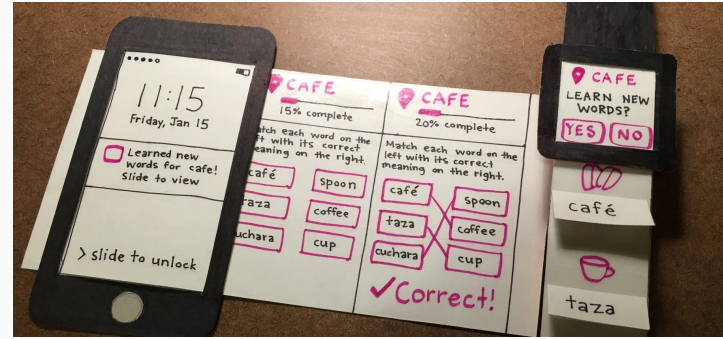 11:15
Friday, Jan 15
Learned new
words for cafe!
Slide to view
> slide to unlock
CAFE
15% complete
each word on the
with its correct
meaning on the right.
café
spoon
coffee
cup
CAFE
20% complete
Match each word on the
left with its correct
meaning on the right.
café
spoon
taza
coffee
cuchara
cup
✓Correct!
CAFE
LEARN NEW
WORDS?
YES
NO
café
taza